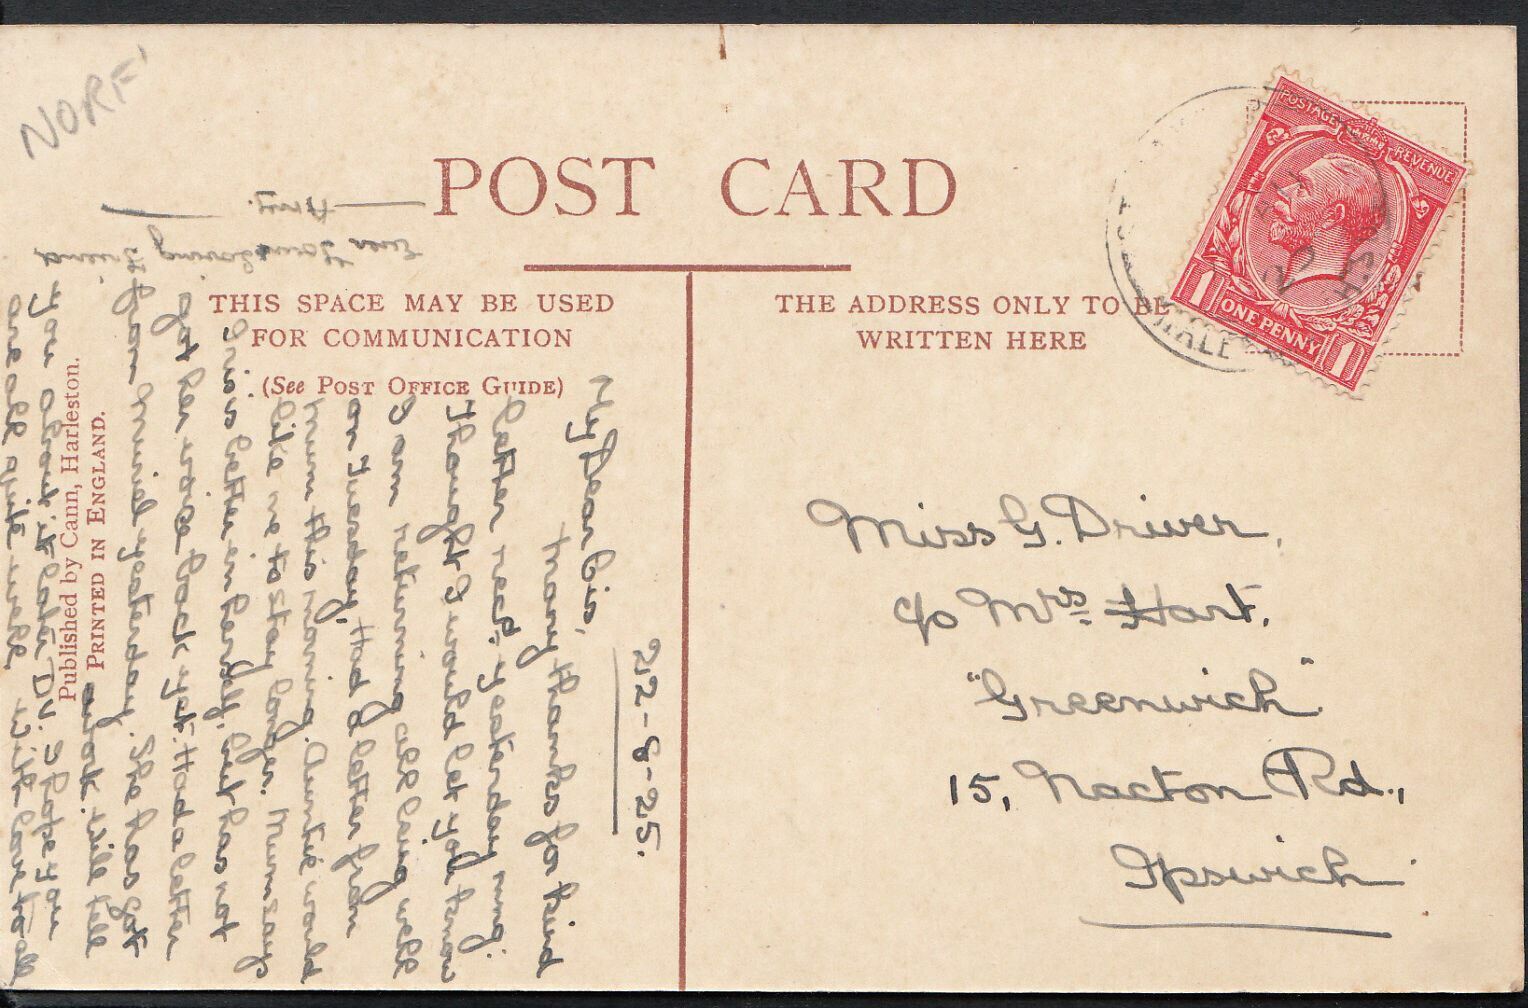 NORF'
POST CARD
THIS SPACE MAY BE USED
FOR COMMUNICATION
(See POST OFFICE GUIDE)
THE ADDRESS ONLY TO BE
WRITTEN HERE
POSTAGE REVENUE
1 ONE PENNY 1
22-8-25.
My Dear Cis,
Many thanks for kind
letter recd. yesterday mng.
Thought I would let you know
I am returning all being well
on Tuesday. Had a letter from
mum this morning. Auntie would
like me to stay longer. Mum says
Iris is better in herself, but has not
got her voice back yet. Had a letter
from Muriel yesterday. She has got
work. Will tell
you about it later D.V. I hope you
are all quite well. With love to all
Ever Your loving friend
Amy.
Miss G. Driver,
c/o Mrs Hart,
"Greenwich"
15, Nacton Rd.,
Ipswich
Published by Cann, Harleston.
PRINTED IN ENGLAND.